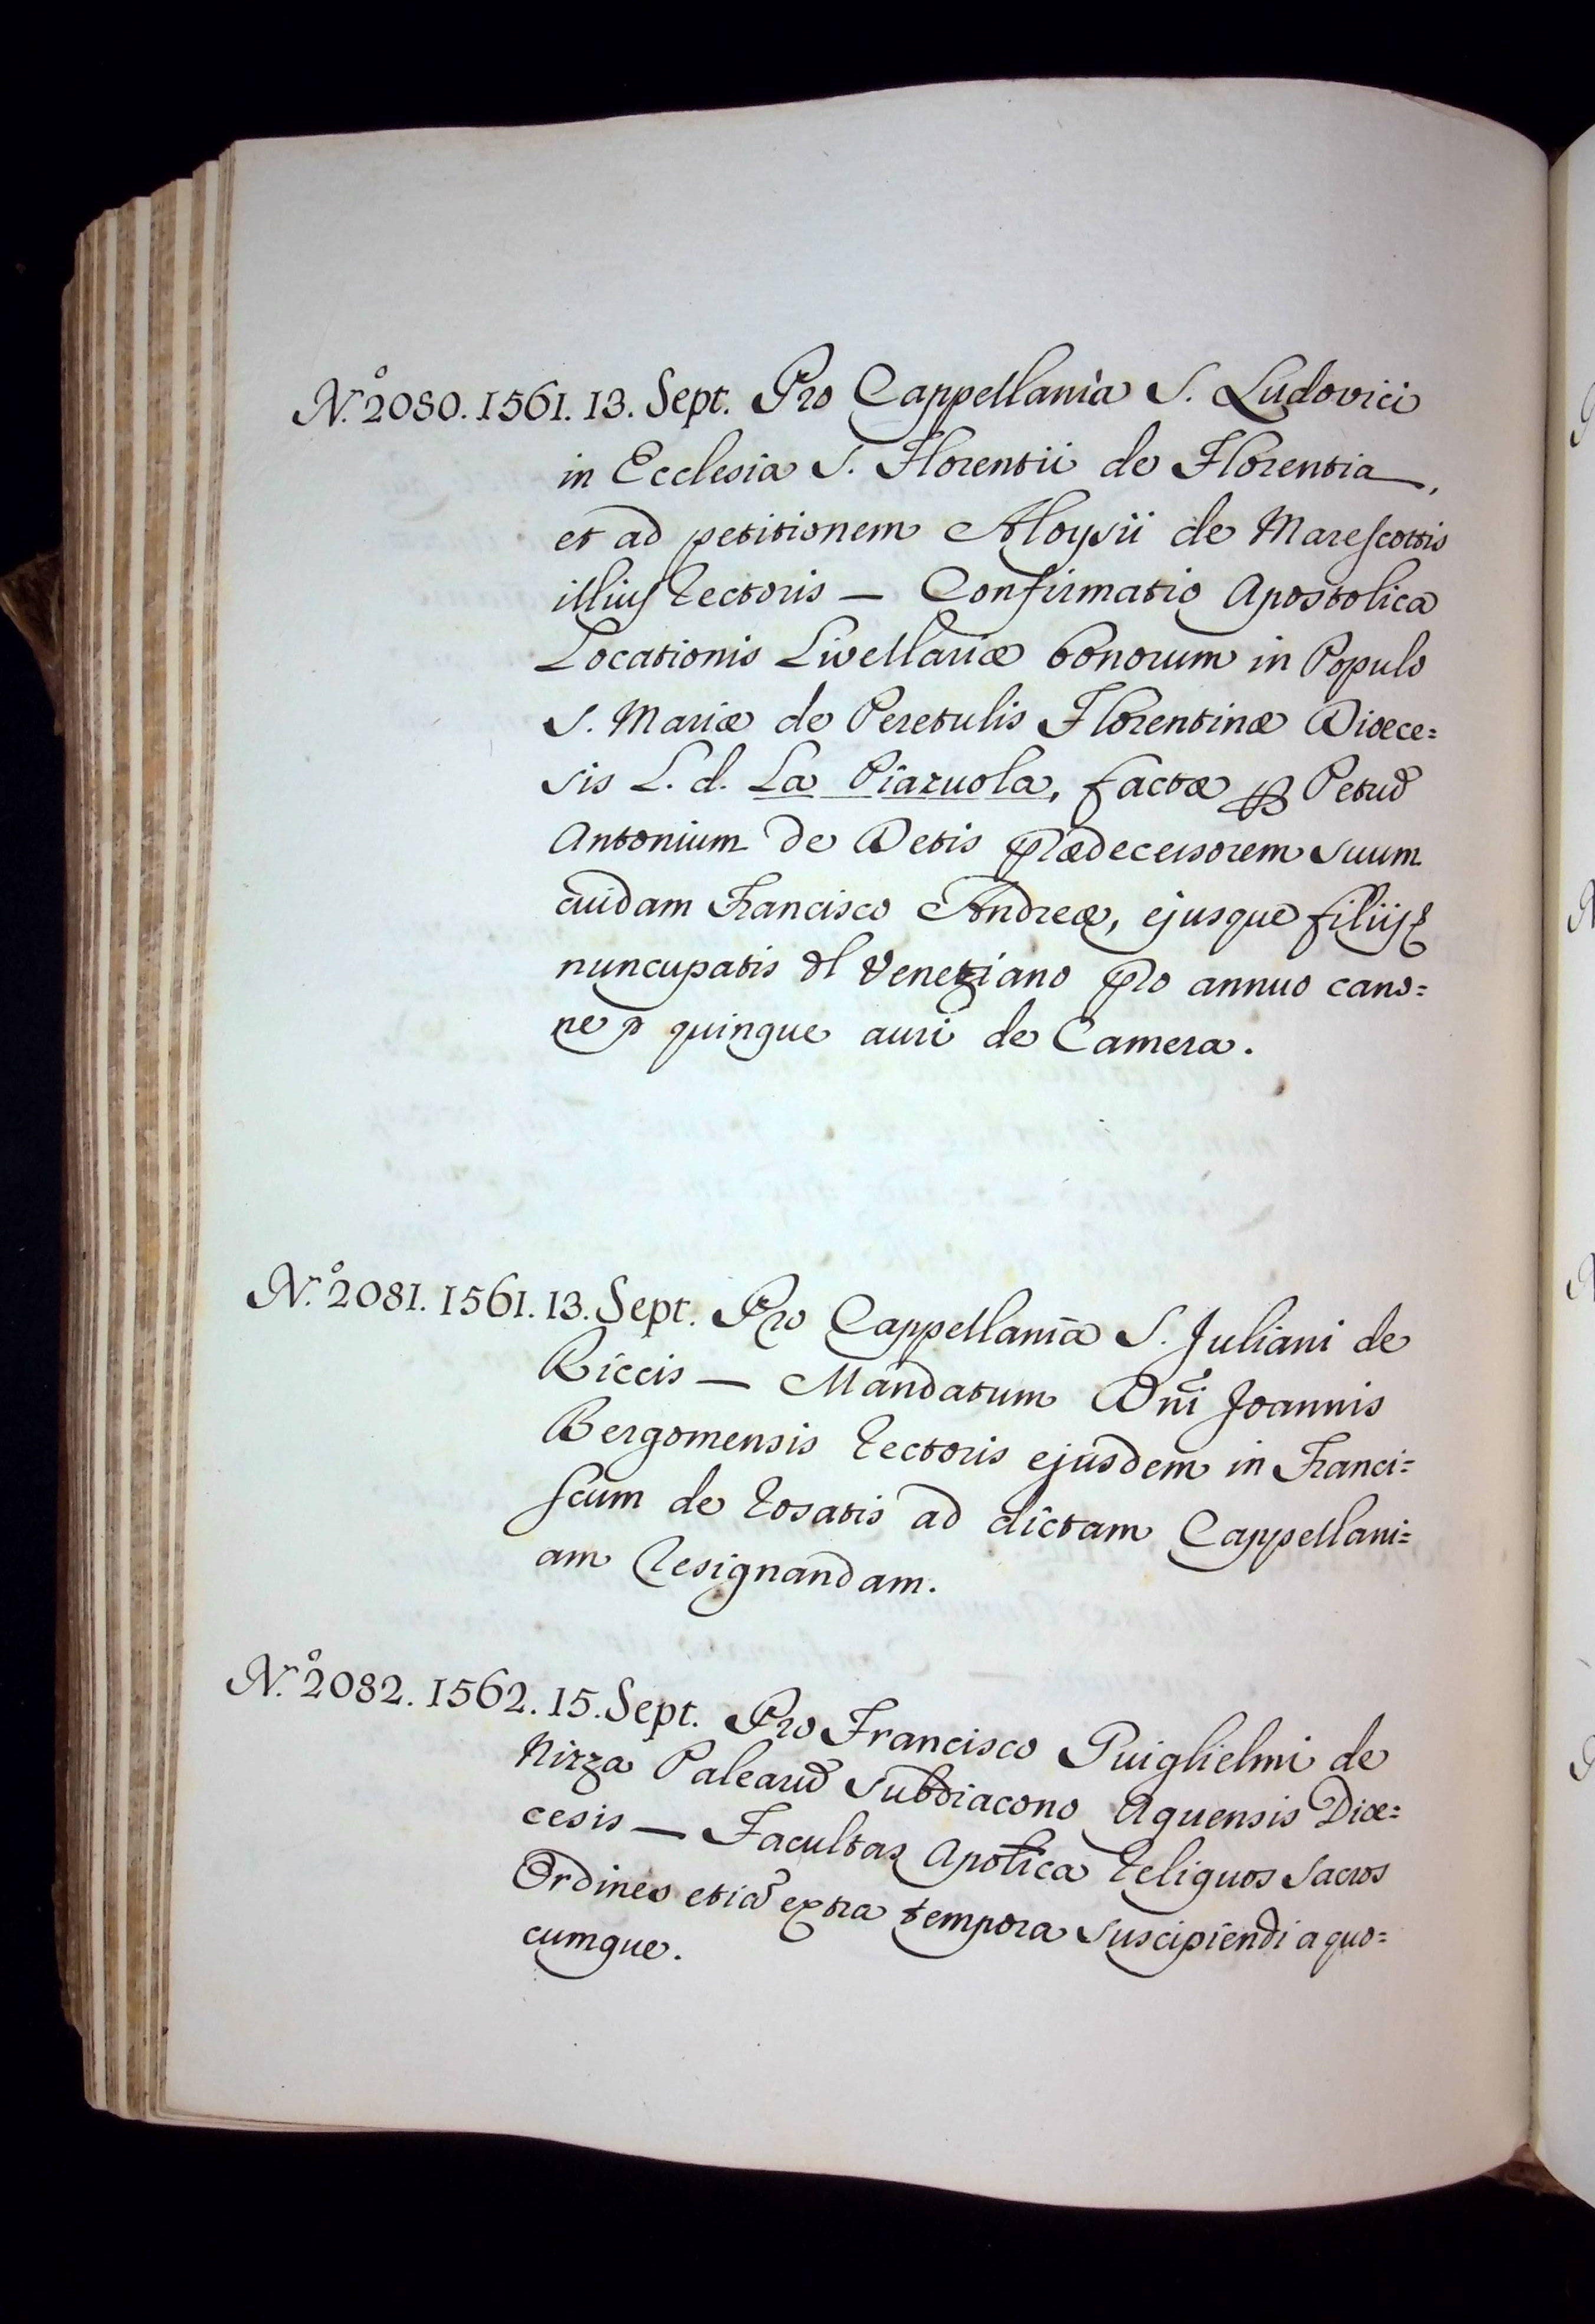 N.º 2080. 1561. 13. Sept. Pro Cappellania S. Ludovici
in Ecclesia S. Florentii de Florentia,
et ad petitionem Aloysii de Marescottis
illius Rectoris — Confirmatio Apostolica
Locationis Livellariæ bonorum in Populo
S. Mariæ de Peretulis Florentinæ Diœce=
sis L. d. La Piazuola, factæ Petrũ
Antonium de Detis prædecessorem suum
cuidam Francisco Andreæ, ejusque filiis
nuncupatis Veneziano pro annuo cano=
ne quinque auri de Camera.
N.º 2081. 1561. 13. Sept. Pro Cappellania S. Juliani de
Riccis — Mandatum Dñi Joannis
Bergomensis Rectoris ejusdem in Franci=
scum de Rosatis ad dictam Cappellani=
am Resignandam.
N.º 2082. 1562. 15. Sept. Pro Francisco Puiglielmi de
Nizza Palearũ Subdiacono Aquensis Diœ=
cesis — Facultas Apõlica Reliquos Sacros
Ordines etiã extra tempora suscipiendi a quo=
cumque.